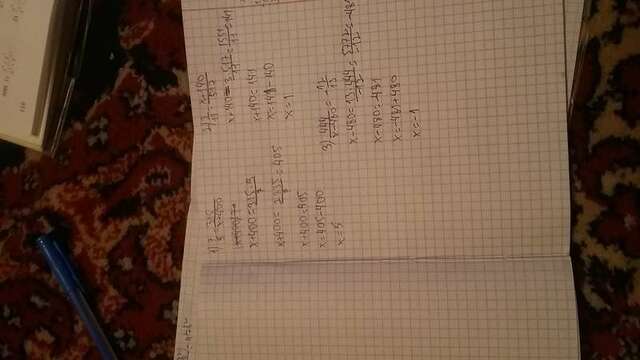 1) 7/9 = 315/x+400
x+400 = 315·9/7
x+400 = 2835/7 = 405
x+400=405
x=405-400
x=5
2) 3/11 = x+140/517
x+140 = 3·517/11 = 1551/11 = 141
x+140=141
x=141-140
x=1
3) 444/x-480 = -12/13
x-480 = 13·444/-12 = 5772/-12 = -481
x-480=-481
x=-481+480
x=-1